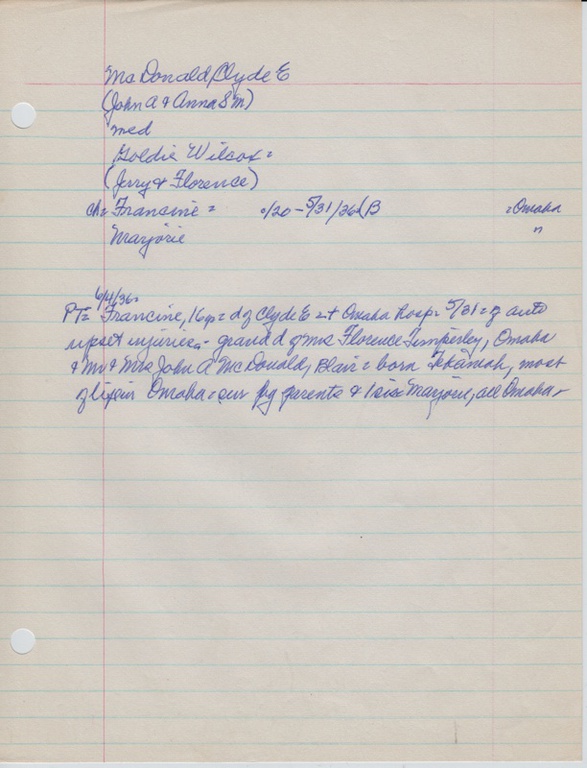 McDonald, Clyde E
(John A & Anna S M)
med
Goldie Wilcox =
(Jerry & Florence)
ch = Francine = /20 - 5/31/36 (B = Omaha
Marjorie "
6/4/36 =
PT = Francine, 16 yo = d of Clyde E = + Omaha Hosp = 5/31 = of auto
upset injuries. - grand d of Mrs Florence Timperley, Omaha
& Mr & Mrs John A McDonald, Blair = born Tekamah, most
of life in Omaha = sur by parents & 1 sis Marjorie, all Omaha -